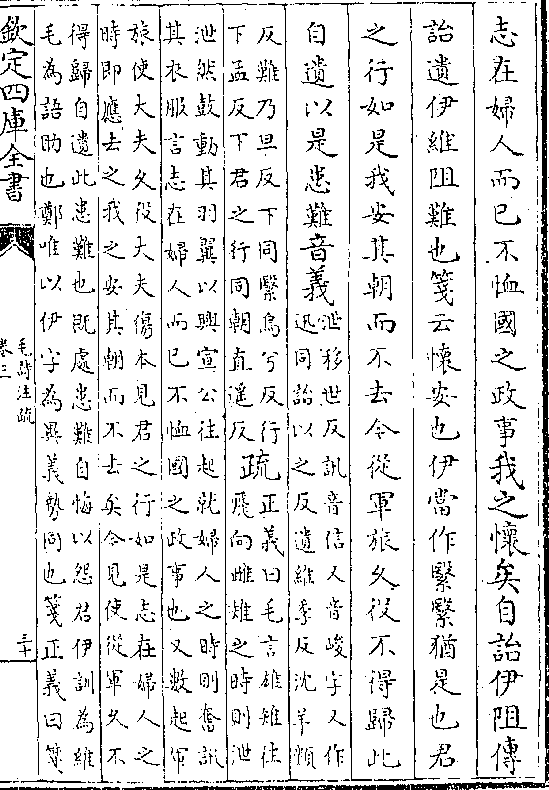 志在婦人而已不恤國之政事我之懷矣自詒伊阻傳
詒遺伊維阻難也箋云懷安也伊當作繄繄猶是也君
之行如是我安其朝而不去今從軍旅久役不得歸此
自遺以是患難音義泄移世反訊音信又音峻字又作
迅同詒以之反遺維季反沈羊類
反難乃旦反下同繄烏兮反行
下孟反下君之行同朝直遥反疏正義曰毛言雄雉往
飛向雌雉之時則泄
泄然鼓動其羽翼以興宣公往起就婦人之時則奮訊
其衣服言志在婦人而已不恤國之政事也又數起軍
旅使大夫久役大夫傷本見君之行如是志在婦人之
時即應去之我之安其朝而不去矣今見使從軍久不
得歸自遺此患難也既處患難自悔以怨君伊訓為維
毛為語助也鄭唯以伊字為異義勢同也箋正義曰箋
欽定四庫全書
毛詩注疏
卷三
三十